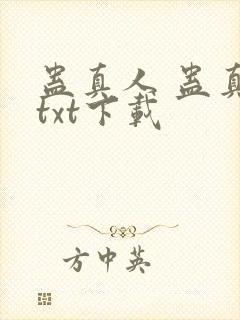 蛊真人 蛊真
txt下载
方中英